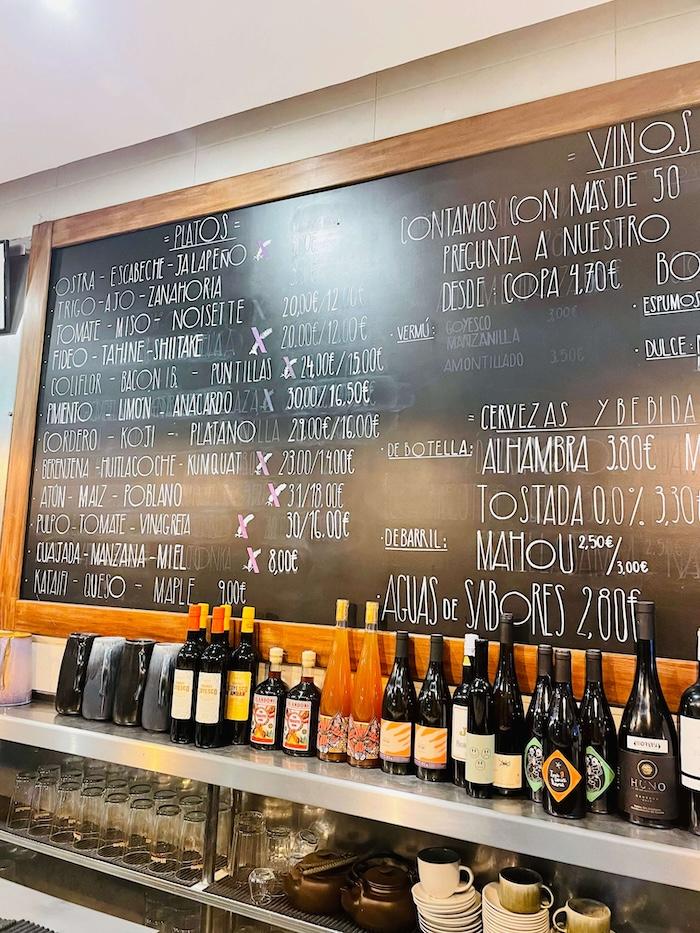 = PLATOS =
· OSTRA - ESCABECHE - JALAPEÑO X
· TRIGO - AJO - ZANAHORIA
· TOMATE - MISO - NOISETTE 20,00€/12,00€
· FIDEO - TAHINE - SHIITAKE X 20,00€/12,00€
· COLIFLOR - BACON IB. - PUNTILLAS X 24,00€/15,00€
· PIMIENTO - LIMÓN - ANACARDO X 30,00/16,50€
· CORDERO - KOJI - PLATANO 29,00€/16,00€
· BERENJENA - HUITLACOCHE - KUMQUAT X 23,00/14,00€
· ATÚN - MAIZ - POBLANO X 31/18,00€
· PULPO - TOMATE - VINAGRETA X 30/16,00€
· CUAJADA - MANZANA - MIEL X 8,00€
· KATAIFI - QUESO - MAPLE 9,00€
= VINOS
CONTAMOS CON MÁS DE 50
PREGUNTA A NUESTRO
DESDE COPA 4,70€ BO
· VERMÚ: GOYESCO 3,00€
MANZANILLA
AMONTILLADO 3,50€
· ESPUMOS
· DULCE:
= CERVEZAS Y BEBIDA
· DE BOTELLA: ALHAMBRA 3,80€ M
TOSTADA 0,0% 3,30
· DE BARRIL: MAHOU 2,50€/3,00€
· AGUAS DE SABORES 2,80€
HUNO